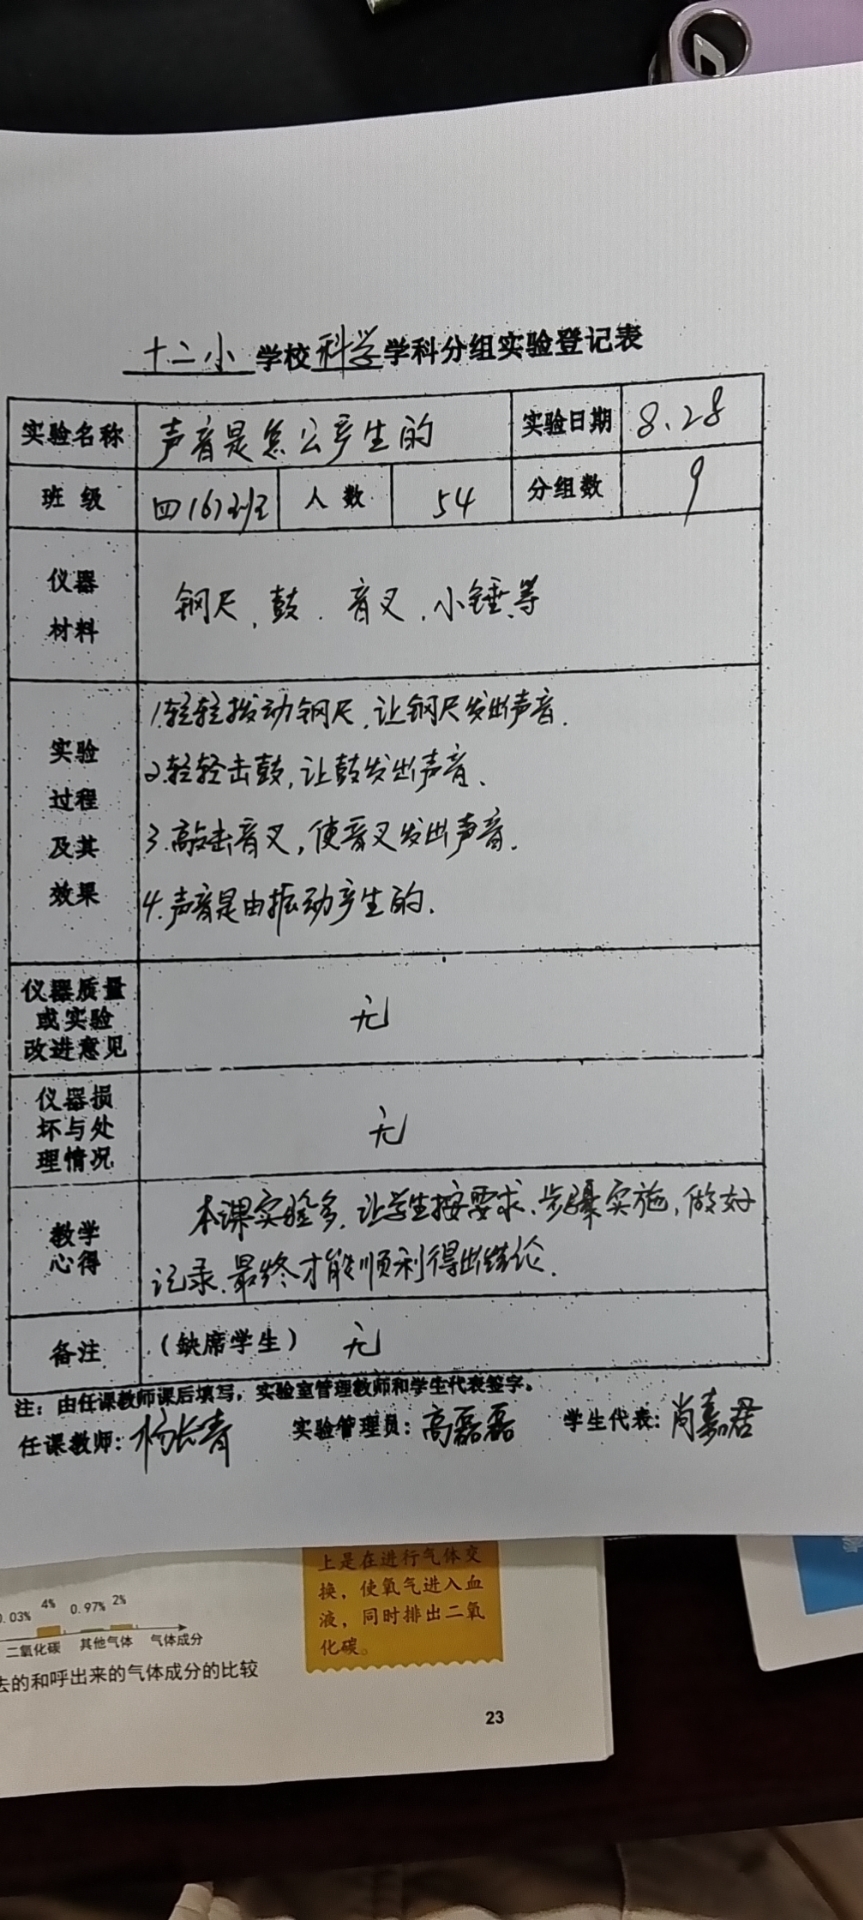 十二小学校科学学科分组实验登记表
实验名称 声音是怎么产生的 实验日期 8.28
班级 四(6)班 人数 54 分组数 9
仪器
材料
钢尺、鼓、音叉、小锤等
实验
过程
及其
效果
1.轻轻拨动钢尺,让钢尺发出声音.
2.轻轻击鼓,让鼓发出声音.
3.敲击音叉,使音叉发出声音.
4.声音是由振动产生的.
仪器质量
或实验
改进意见
无
仪器损
坏与处
理情况
无
教学
心得
本课实验多,让学生按要求、步骤实施,做好
记录,最终才能顺利得出结论.
备注 (缺席学生) 无
注:由任课教师课后填写,实验室管理教师和学生代表签字。
任课教师:杨长青 实验管理员:高磊磊 学生代表:肖嘉君
上是在进行气体交
换,使氧气进入血
液,同时排出二氧
化碳。
0.03% 4% 0.97% 2%
二氧化碳 其他气体 气体成分
去的和呼出来的气体成分的比较
23